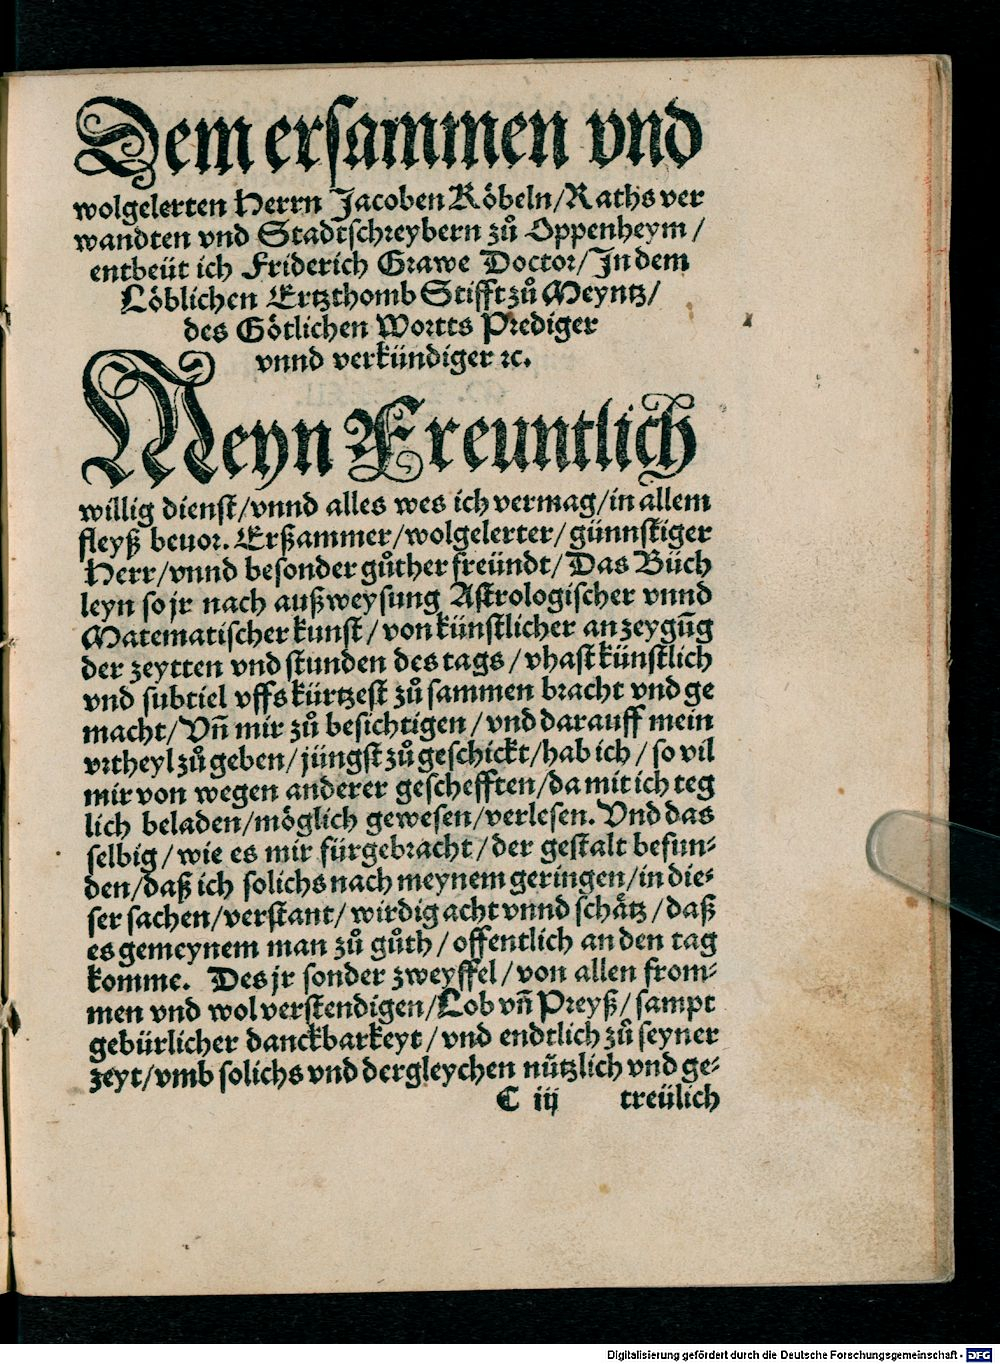 Dem ersammen vnd
wolgelerten Herrn Jacoben Köbeln/Raths ver
wandten vnd Stadtschreybern zů Oppenheym/
entbeüt ich Friderich Grawe Doctor/In dem
Löblichen Ertzthomb Stifft zů Meyntz/
des Götlichen Wortts Prediger
vnnd verkündiger ꝛc.
Meyn Freuntlich
willig dienst/vnnd alles wes ich vermag/in allem
fleyß beuor. Erßammer/wolgelerter/günnstiger
Herr/vnnd besonder gůther freündt/Das Büch
leyn so jr nach außweysung Astrologischer vnnd
Matematischer kunst/von künstlicher anzeygūg
der zeytten vnd stunden des tags/vhast künstlich
vnd subtiel vffs kürtzest zů sammen bracht vnd ge
macht/Vñ mir zů besichtigen/vnd darauff mein
vrtheyl zů geben/jüngst zů geschickt/hab ich/so vil
mir von wegen anderer geschefften/da mit ich teg
lich beladen/möglich gewesen/verlesen. Vnd das
selbig/wie es mir fürgebracht/der gestalt befun-
den/daß ich solichs nach meynem geringen/in die-
ser sachen/verstant/wirdig acht vnnd schätz/daß
es gemeynem man zů gůth/offentlich an den tag
komme. Des jr sonder zweyffel/von allen from-
men vnd wol verstendigen/Lob vñ Preyß/sampt
gebürlicher danckbarkeyt/vnd endtlich zů seyner
zeyt/vmb solichs vnd dergleychen nützlich vnd ge-
C iij treülich
Digitalisierung gefördert durch die Deutsche Forschungsgemeinschaft - DFG